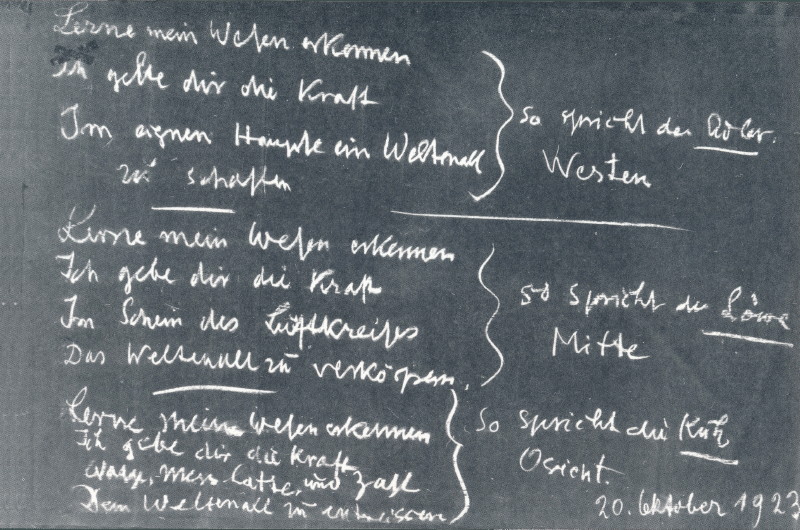 Lerne mein Wesen erkennen
ich gebe dir die Kraft
Im eignen Haupte ein Weltenall
zu schaffen
so spricht der Adler.
Westen
Lerne mein Wesen erkennen
Ich gebe dir die Kraft
Im Schein des Luftkreises
Das Weltenall zu verkörpern.
so spricht der Löwe
Mitte
Lerne mein Wesen erkennen
Ich gebe dir die Kraft
Wage, Mess-Latte, und Zahl
Dem Weltenall zu entreissen
So spricht die Kuh
Osten.
20. Oktober 1923